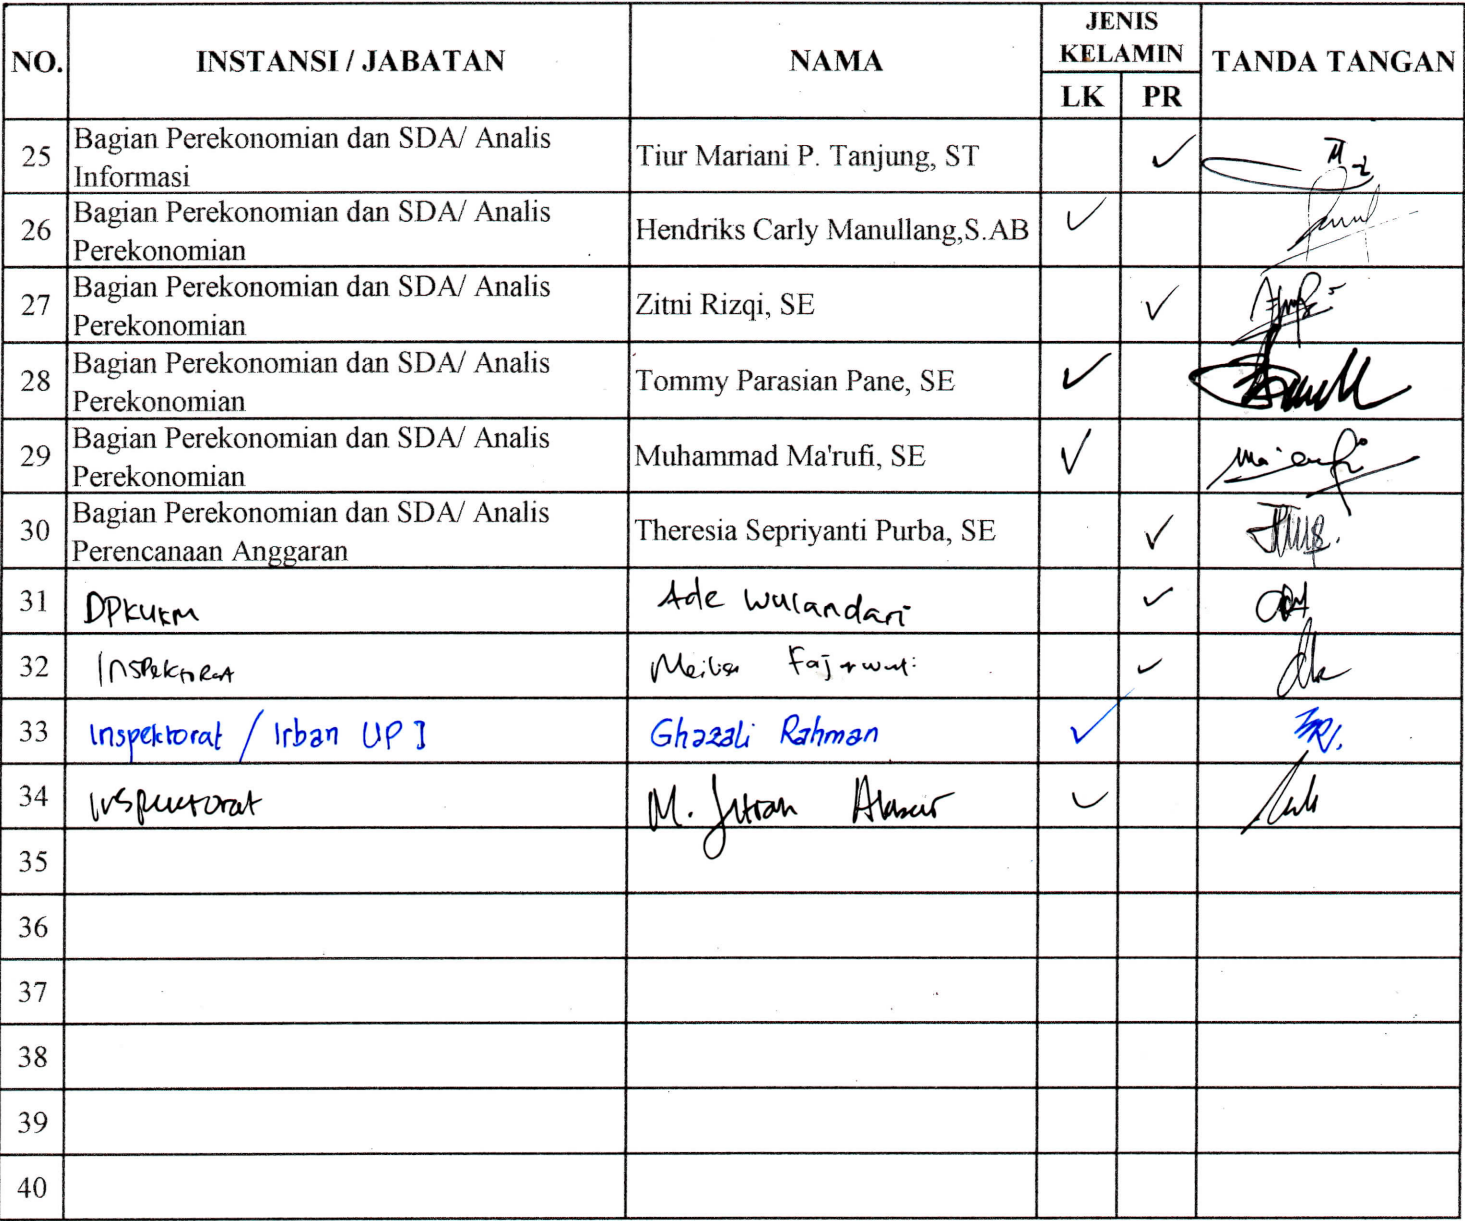 NO. INSTANSI / JABATAN NAMA JENIS KELAMIN TANDA TANGAN
LK PR
25 Bagian Perekonomian dan SDA/ Analis Informasi Tiur Mariani P. Tanjung, ST ✓
26 Bagian Perekonomian dan SDA/ Analis Perekonomian Hendriks Carly Manullang,S.AB ✓
27 Bagian Perekonomian dan SDA/ Analis Perekonomian Zitni Rizqi, SE ✓
28 Bagian Perekonomian dan SDA/ Analis Perekonomian Tommy Parasian Pane, SE ✓
29 Bagian Perekonomian dan SDA/ Analis Perekonomian Muhammad Ma'rufi, SE ✓
30 Bagian Perekonomian dan SDA/ Analis Perencanaan Anggaran Theresia Sepriyanti Purba, SE ✓
31 DPKUKM Ade Wulandari ✓
32 Inspektorat ✓
33 Inspektorat / Irban UP I Ghazali Rahman ✓
34 Inspektorat M. ✓
35
36
37
38
39
40